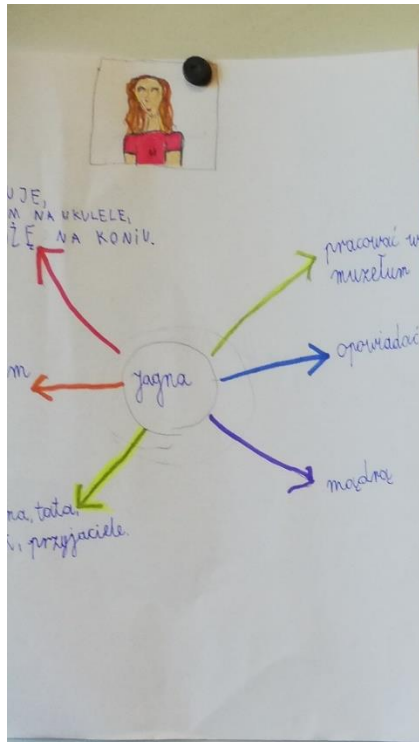 UJĘ,
M NA UKULELE,
ŻĘ NA KONIU.
pracować w
muzełum
opowiadać
m
Jagna
mądrą
na, tata,
i, przyjaciele.